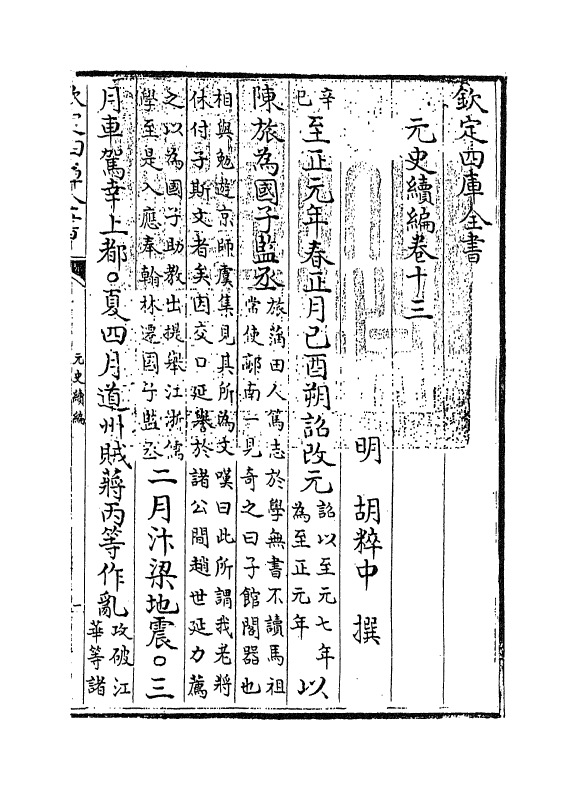 欽定四庫全書
元史續編卷十三
明 胡粹中 撰
辛巳至正元年春正月己酉朔詔改元詔以至元七年為至正元年以
陳旅為國子監丞旅莆田人篤志於學無書不讀馬祖常使郵南一見奇之曰子館閣器也
相與勉遊京師虞集見其所為文嘆曰此所謂我老將休付子斯文者矣因交口延譽於諸公間趙世延力薦
之以為國子助教出提舉江浙儒學至是入應奉翰林遷國子監丞二月汴梁地震○三
月車駕幸上都○夏四月道州賊蔣丙等作亂攻破江華等諸
欽定四庫全書
元史續編
一